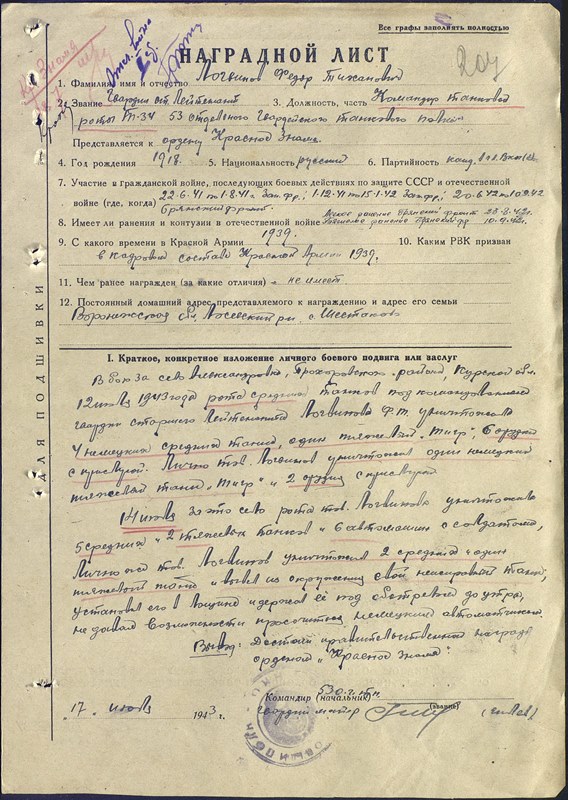 Все графы заполнять полностью
207
НАГРАДНОЙ ЛИСТ
1. Фамилия, имя и отчество Логвинов Федор Тиханович
2. Звание Гвардии ст. Лейтенант 3. Должность, часть Командир танковой
роты Т-34 53 отдельного Гвардейского танкового полка
Представляется к ордену Красное Знамя.
4. Год рождения 1918. 5. Национальность русский 6. Партийность канд. в чл. ВКП(б).
7. Участие в гражданской войне, последующих боевых действиях по защите СССР и отечественной
войне (где, когда) 22-6-41 по 1-8-41 г. Зап. фр.; 1-12-41 по 15-1-42 Зап. фр.; 20-6-42 по 10-9-42
Брянский фронт.
8. Имеет ли ранения и контузии в отечественной войне Легкое ранение Брянский фронт 23-8-42 г.
ранение Брянский фр 10-9-42 г.
9. С какого времени в Красной Армии 1939. 10. Каким РВК призван
в кадровом составе Красной Армии 1939.
11. Чем ранее награжден (за какие отличия) не имеет
12. Постоянный домашний адрес представляемого к награждению и адрес его семьи
Воронежская обл. Лосевский р-н с. Шестаково
ДЛЯ ПОДШИВКИ
I. Краткое, конкретное изложение личного боевого подвига или заслуг
В бою за село Александровка, Прохоровского района, Курской обл.
12 июля 1943 года рота средних танков под командованием
гвардии старшего Лейтенанта Логвинова Ф.Т. уничтожила
4 немецких средних танка, один тяжелый "Тигр", 6 орудий
с прислугой. Лично тов. Логвинов уничтожил один немецкий
тяжелый танк "Тигр" и 2 орудия с прислугой
14 июля за это село рота тов. Логвинова уничтожила
5 средних и 2 тяжелых танков и 6 автомашин с солдатами,
Лично тов. Логвинов уничтожил 2 средних и один
тяжелый танк и вывел из окружения свой неисправный танк,
установил его в лощине и держал её под обстрелом до утра,
не давал возможности просочиться немецким автоматчикам.
Вывод: Достоин правительственной награды
орденом "Красное Знамя".
Командир (начальник) 53 О.Г.Т.П.
Гвардии майор (звание)
"17" июля 1943 г.